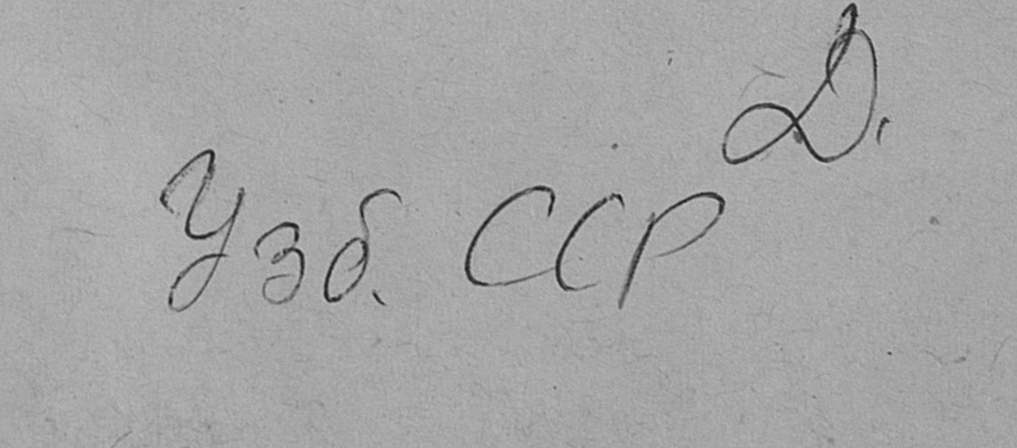 Д.
Узб. ССР